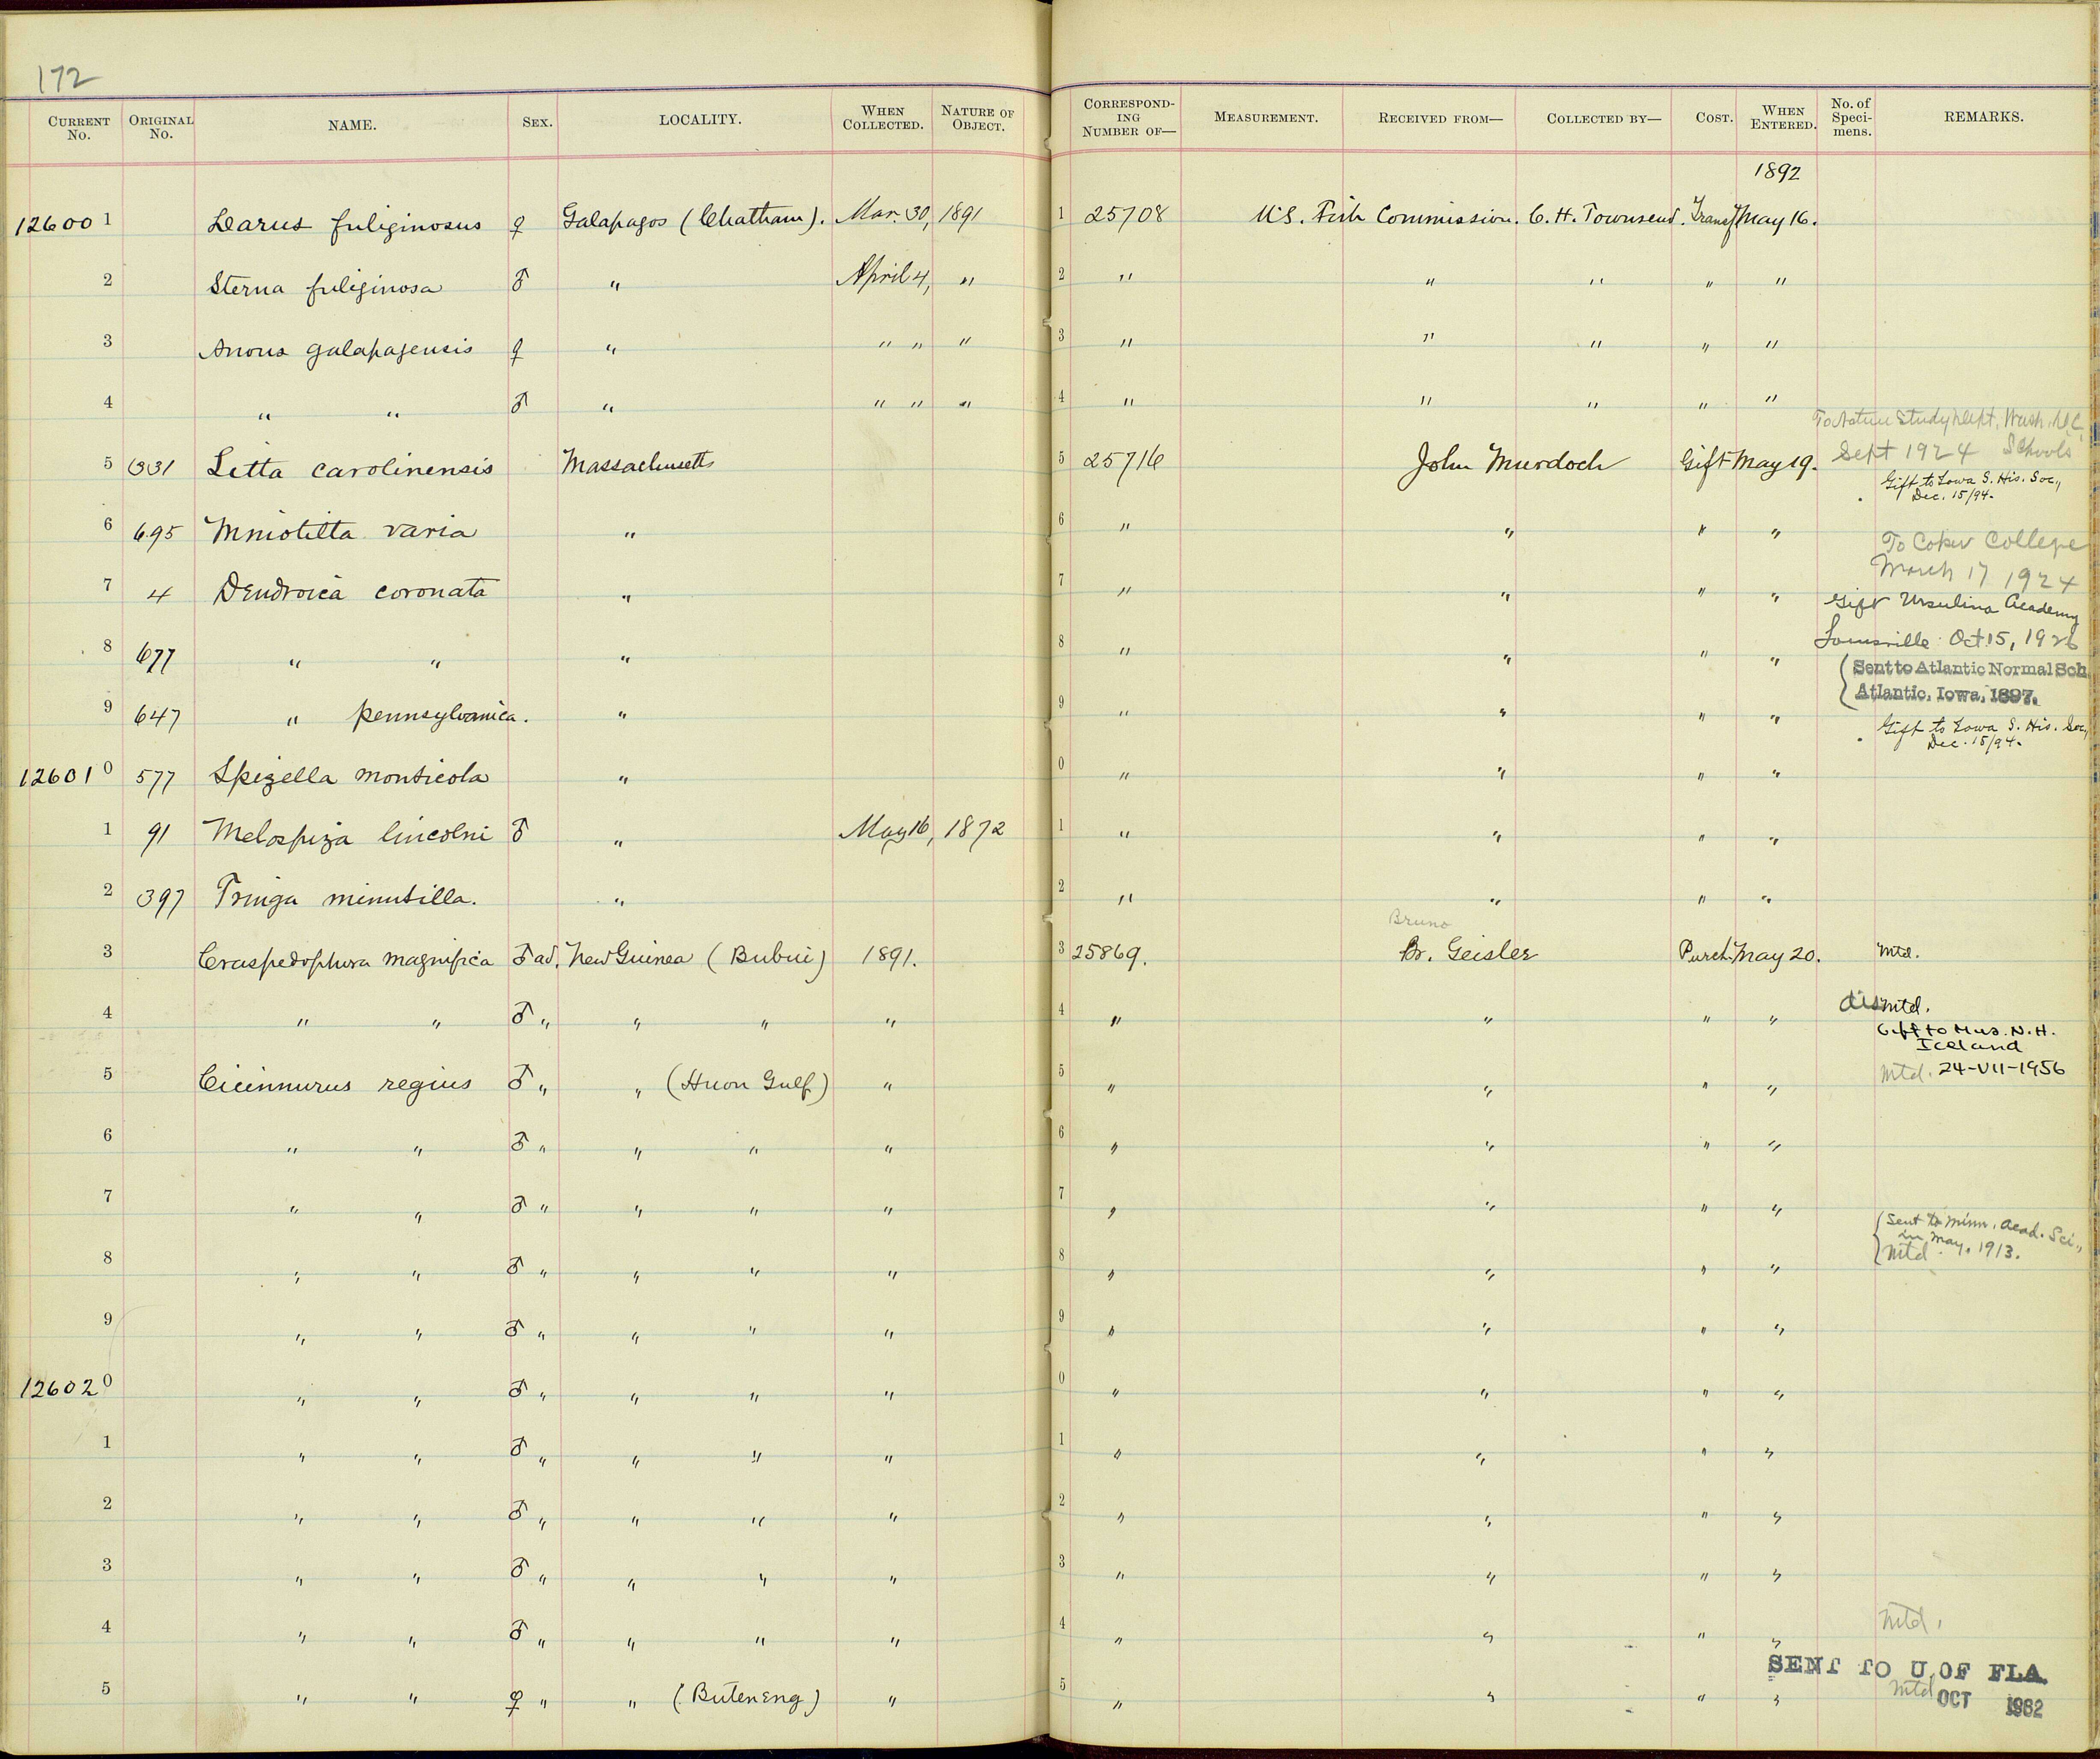 172
CURRENT No. ORIGINAL No. NAME. SEX. LOCALITY. WHEN COLLECTED. NATURE OF OBJECT. CORRESPONDING NUMBER OF— MEASUREMENT. RECEIVED FROM— COLLECTED BY— COST. WHEN ENTERED. No. of Specimens. REMARKS.
1892
12600 1 Larus fuliginosus ♀ Galapagos (Chatham). Mar. 30, 1891 1 25708 U.S. Fish Commission. C. H. Townsend. Transf. May 16.
2 Sterna fuliginosa ♂ " April 4, " 2 " " " " "
3 Anous galapagensis ♀ " " " " 3 " " " " "
4 " " ♂ " " " " 4 " " " " "
To Nature Study Dept, Wash. D.C.
5 331 Sitta carolinensis Massachusetts 5 25716 John Murdoch Gift May 19. Sept 1924 Schools
Gift to Iowa S. His. Soc., Dec. 15/94.
6 695 Mniotilta varia " 6 " " " " To Coker College
7 4 Dendroica coronata " 7 " " " " March 17 1924
Gift Ursulina Academy
8 677 " " " 8 " " " " Louisville Oct. 15, 1926
Sent to Atlantic Normal Sch
Atlantic, Iowa, 1897.
9 647 " pennsylvanica. " 9 " " " " Gift to Iowa S. His. Soc., Dec. 15/94.
12601 0 577 Spizella monticola " 0 " " " "
1 91 Melospiza lincolni ♂ " May 16, 1872 1 " " " "
2 397 Tringa minutilla. " 2 " " " "
Bruno
3 Craspedophora magnifica ♂ ad. New Guinea (Bubui) 1891. 3 25869. Br. Geisler Purch. May 20. Mtd.
4 " " ♂ " " " " 4 " " " " dismtd.
Gift to Mus. N.H.
Iceland
5 Cicinnurus regius ♂ " " (Huon Gulf) " 5 " " " " Mtd. 24-VII-1956
6 " " ♂ " " " " 6 " " " "
7 " " ♂ " " " " 7 " " " "
Sent to Minn. Acad. Sci., in May. 1913.
8 " " ♂ " " " " 8 " " " " Mtd.
9 " " ♂ " " " " 9 " " " "
12602 0 " " ♂ " " " " 0 " " " "
1 " " ♂ " " " " 1 " " " "
2 " " ♂ " " " " 2 " " " "
3 " " ♂ " " " " 3 " " " "
4 " " ♂ " " " " 4 " " " " Mtd.
SENT TO U. OF FLA.
5 " " ♀ " " (Buteneng) " 5 " " " " Mtd OCT 1962